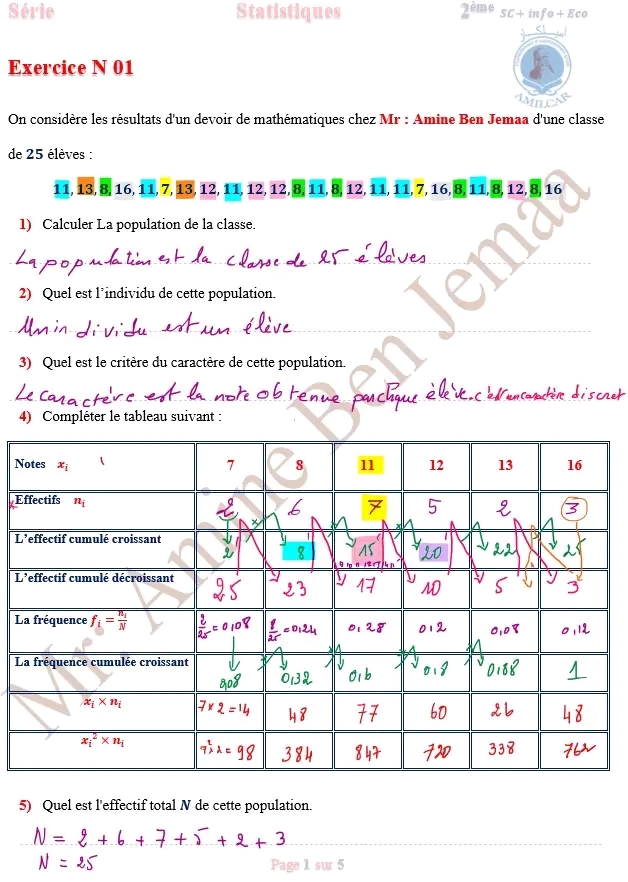 Série Statistiques 2ème SC + info + Eco
AMILCAR
Exercice N 01
On considère les résultats d'un devoir de mathématiques chez Mr : Amine Ben Jemaa d'une classe
de 25 élèves :
11, 13, 8, 16, 11, 7, 13, 12, 11, 12, 12, 8, 11, 8, 12, 11, 11, 7, 16, 8, 11, 8, 12, 8, 16
1) Calculer La population de la classe.
La population est la classe de 25 élèves
2) Quel est l'individu de cette population.
Un individu est un élève
3) Quel est le critère du caractère de cette population.
Le caractère est la note obtenue par chaque élève. c'est un caractère discret
4) Compléter le tableau suivant :
Notes xi 7 8 11 12 13 16
Effectifs ni 2 6 7 5 2 3
L'effectif cumulé croissant 2 8 15 20 22 25
L'effectif cumulé décroissant 25 23 17 10 5 3
La fréquence fi = ni/N 2/25 = 0,08 6/25 = 0,24 0,28 0,2 0,08 0,12
La fréquence cumulée croissant 0,08 0,32 0,6 0,8 0,88 1
xi × ni 7 × 2 = 14 48 77 60 26 48
xi² × ni 7² × 2 = 98 384 847 720 338 762
5) Quel est l'effectif total N de cette population.
N = 2 + 6 + 7 + 5 + 2 + 3
N = 25
Page 1 sur 5
Mr: Amine Ben Jemaa